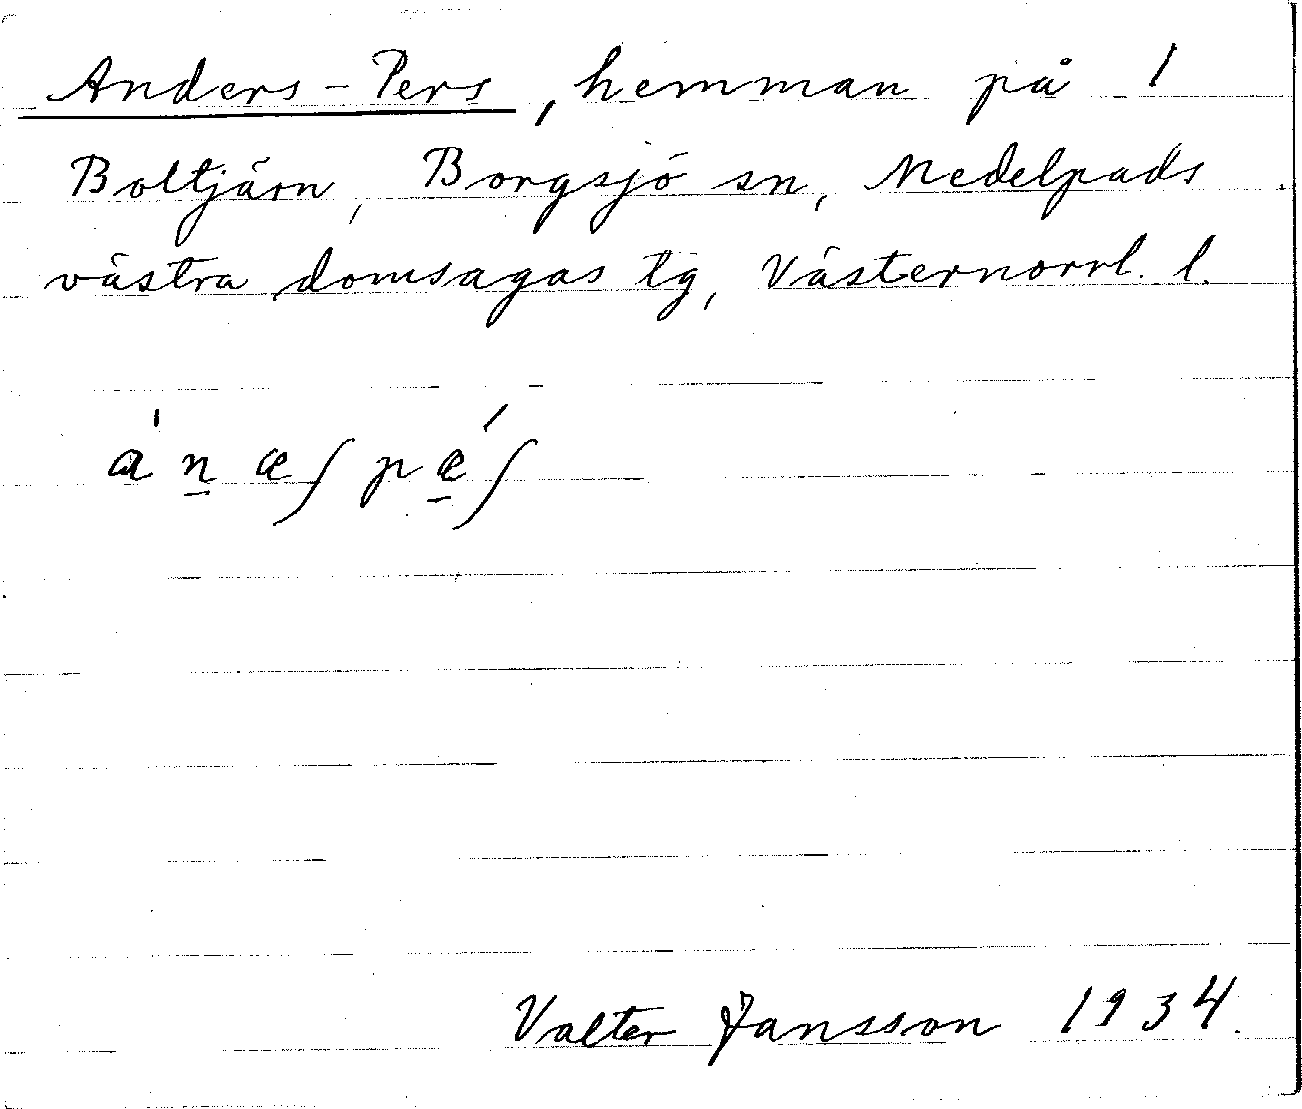 Anders-Pers, hemman på 1
Boltjärn, Borgsjö sn, Medelpads
västra domsagas tg, Västernorrl. l.
Valter Jansson 1934.